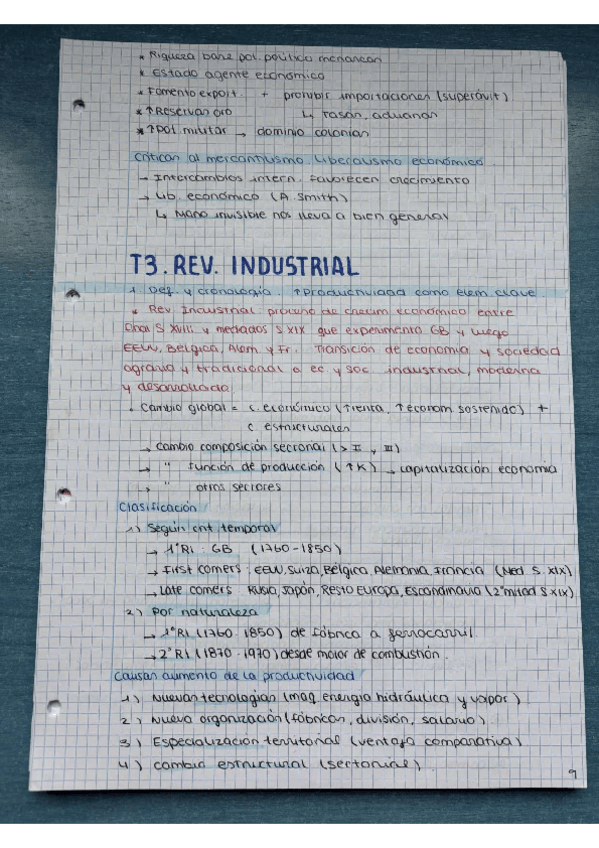 * Riqueza base pol. político monarcon
* Estado agente económico
* Fomento export. + prohibir importaciones (superávit)
* ↑Reservas oro ↳ tasas, aduanas
* ↑Pol. militar → dominio colonias
Critican al mercantilismo. Liberalismo económico.
→ Intercambios intern. favorecen crecimiento
→ Lib. económico (A. Smith)
↳ Mano invisible nos lleva a bien general
T3. REV. INDUSTRIAL
1. Def. y cronología. ↑Productividad como elem. clave.
* Rev. Industrial: proceso de crecim. económico entre
final S XVIII y mediados S XIX que experimenta GB y luego
EEUU, Bélgica, Alem. y Fr. Transición de economía y sociedad
agraria y tradicional a ec. y soc. industrial, moderna
y desarrollada.
. Cambio global = c. económico (↑renta, ↑econom sostenido) +
c. estructurales
→ Cambio composición sectorial (> II y III)
→ " función de producción (↑K) → capitalización economía
↳ " otros sectores
Clasificación
1) Según crit temporal
→ 1ªRI: GB (1760-1850)
→ First comers: EEUU, Suiza, Bélgica, Alemania, Francia (Med S. XIX)
→ Late comers: Rusia, Japón, Resto Europa, Escandinavia (2ªmitad S XIX)
2) Por naturaleza
→ 1ªRI (1760-1850) de fábrica a ferrocarril
→ 2ªRI (1870-1970) desde motor de combustión.
Causas aumento de la productividad
1) Nuevas tecnologías (maq. energía hidráulica y vapor)
2) Nueva organización (fábricas, división, salario)
3) Especialización territorial (ventaja comparativa)
4) Cambio estructural (sectorial)
9